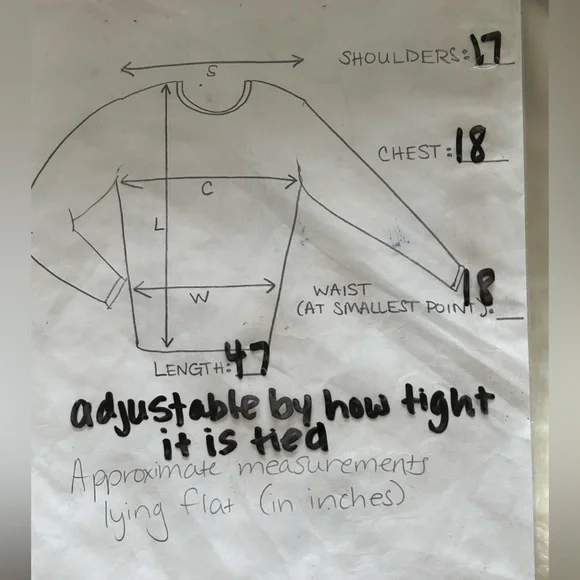 S
SHOULDERS: 17
CHEST: 18
C
L
W
WAIST
(AT SMALLEST POINT): 18
LENGTH: 47
adjustable by how tight
it is tied
Approximate measurements
lying flat (in inches)